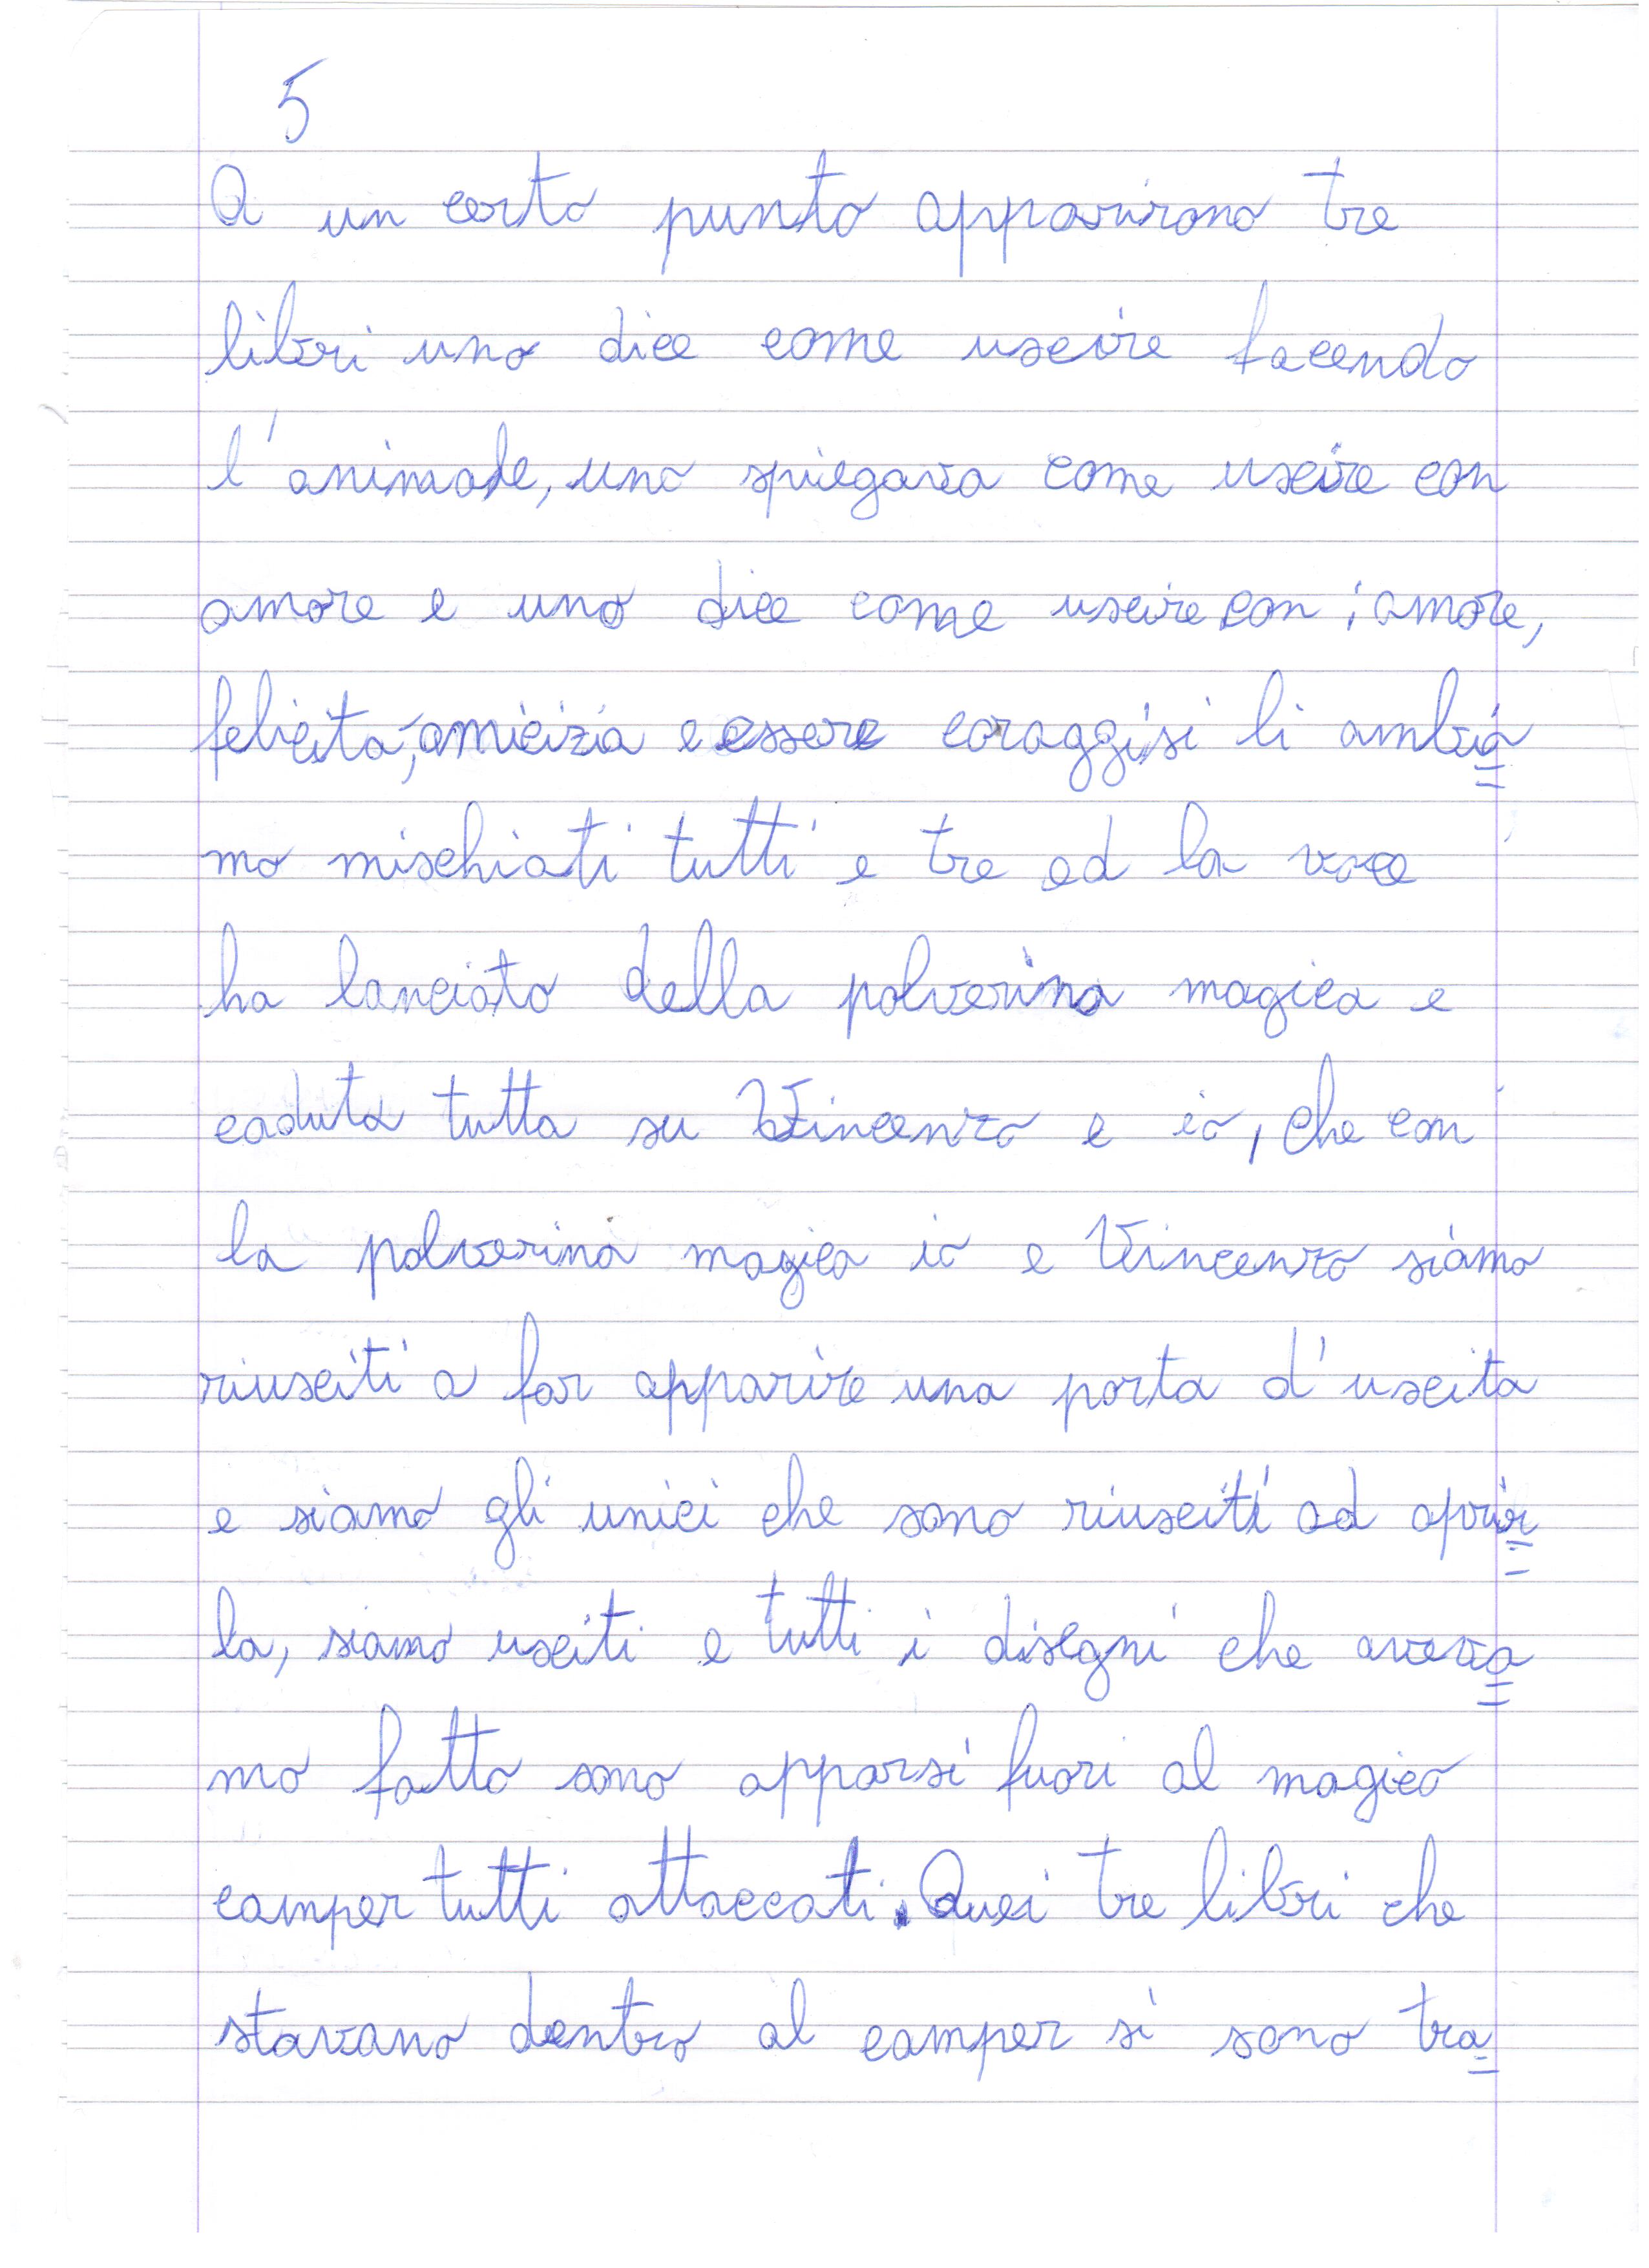 5
A un certo punto apparirono tre
libri uno dice come uscire facendo
l'animale, uno spiegava come uscire con
amore e uno dice come uscire con: amore,
felicità, amicizia e essere coraggisi li ambia=
mo mischiati tutti e tre ed la voce
ha lanciato della polverina magica e
caduta tutta su Vincenzo e io, che con
la polverina magica io e Vincenzo siamo
riusciti a far apparire una porta d'uscita
e siamo gli unici che sono riusciti ad aprir=
la, siamo usciti e tutti i disegni che aveva=
mo fatto sono apparsi fuori al magico
camper tutti attaccati. Quei tre libri che
stavano dentro al camper si sono tra=